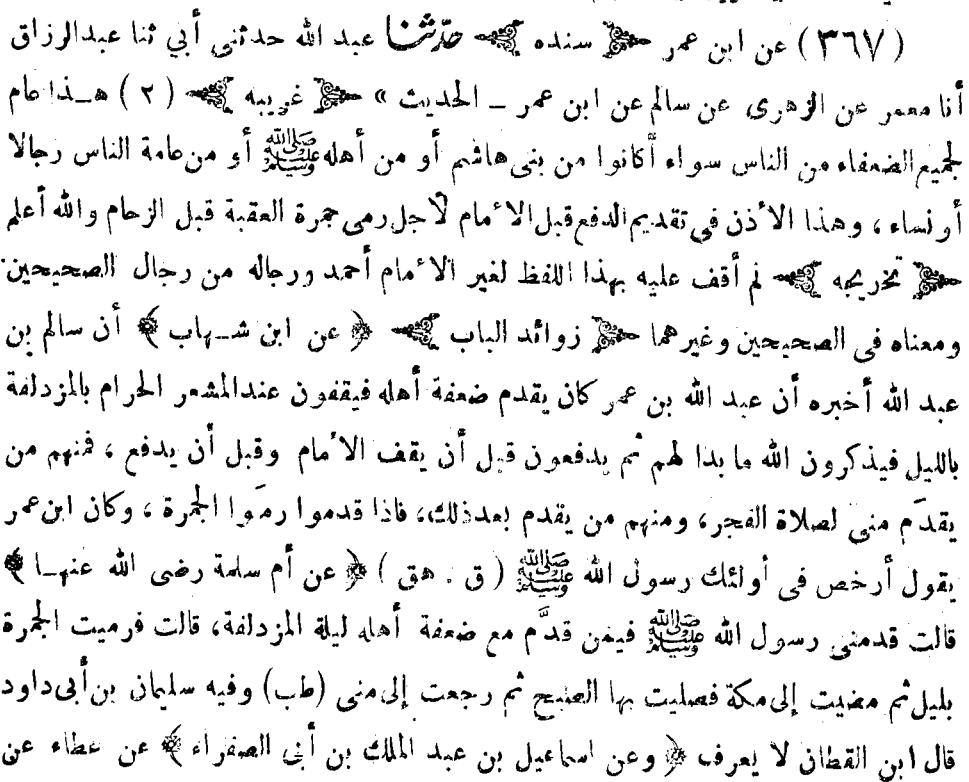 (٣٦٧) عن ابن عمر ﴿ سنده ﴾ حدّثنا عبد الله حدثنى أبي ثنا عبدالرزاق
أنا معمر عن الزهرى عن سالم عن ابن عمر ـ الحديث » ﴿ غريبه ﴾ (٢) هـذا عام
لجميع الضعفاء من الناس سواء أكانوا من بنى هاشم أو من أهله ﷺ أو من عامة الناس رجالا
أو نساء ، وهذا الأذن في تقديم الدفع قبل الأمام لأجل رمى جمرة العقبة قبل الزحام والله أعلم
﴿ تخريجه ﴾ لم أقف عليه بهذا اللفظ لغير الأمام أحمد ورجاله من رجال الصحيحين
ومعناه في الصحيحين وغيرهما ﴿ زوائد الباب ﴾ ﴿ عن ابن شـهاب ﴾ أن سالم بن
عبد الله أخبره أن عبد الله بن عمر كان يقدم ضعفة أهله فيقفون عندالمشعر الحرام بالمزدلفة
بالليل فيذكرون الله ما بدا لهم ثم يدفعون قبل أن يقف الأمام وقبل أن يدفع ، فمنهم من
يقدَم منى لصلاة الفجر، ومنهم من يقدم بعدذلك، فاذا قدموا رمَوا الجمرة ، وكان ابن عمر
يقول أرخص فى أولئك رسول الله ﷺ (ق . هق) ﴿ عن أم سلمة رضى الله عنهـا ﴾
قالت قدمنى رسول الله ﷺ فيمن قدَّم مع ضعفة أهله ليلة المزدلفة، قالت فرميت الجمرة
بليل ثم مضيت إلى مكة فصليت بها الصبح ثم رجعت إلى منى (طب) وفيه سليمان بن أبى داود
قال ابن القطان لا يعرف ﴿ وعن اسماعيل بن عبد الملك بن أبى الصفراء ﴾ عن عطاء عن